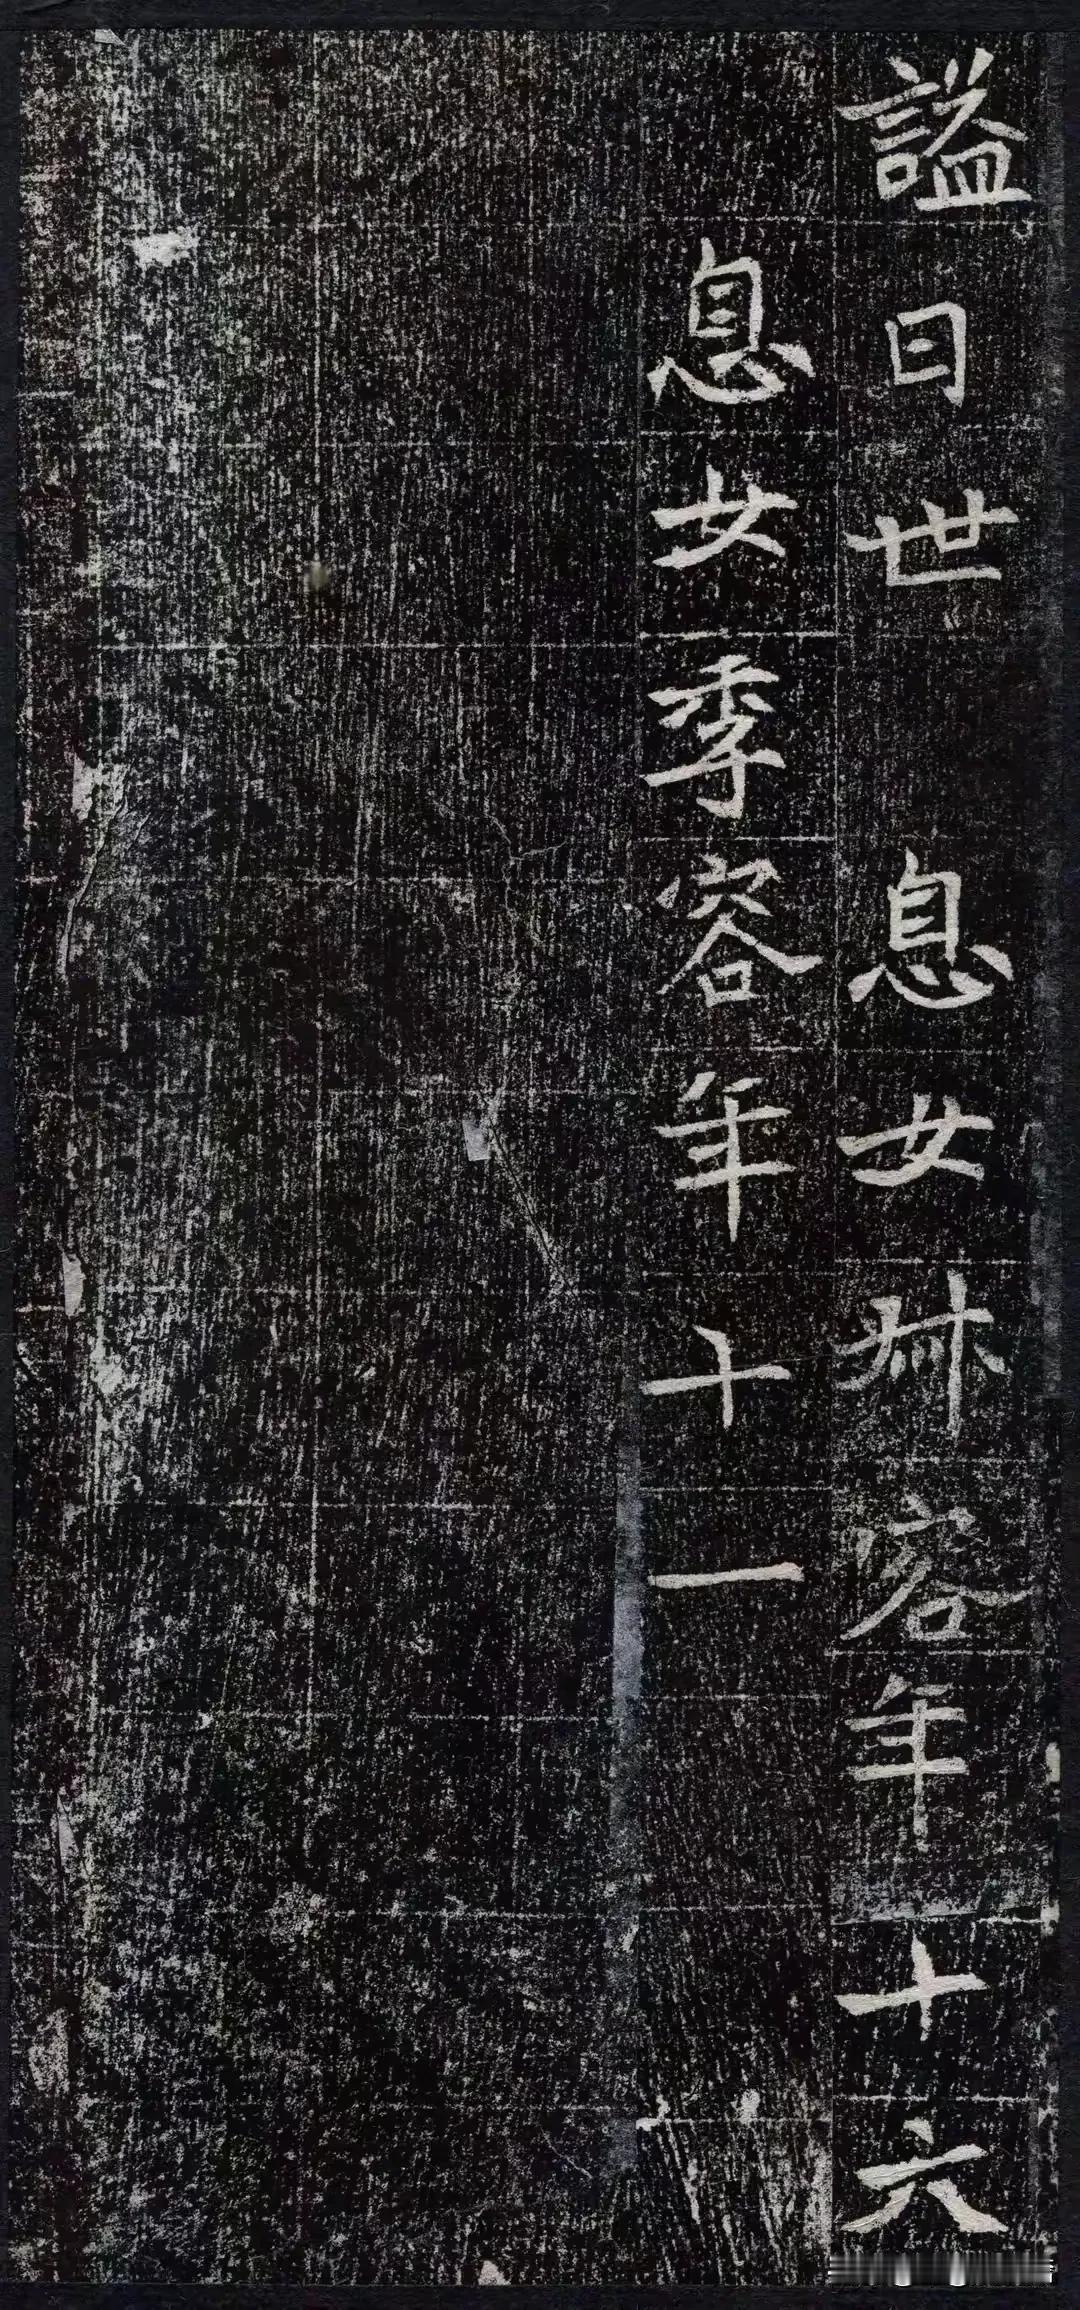 謚曰世 息女叔容年十六
息女季容年十一